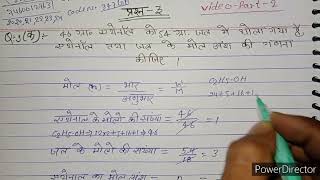 प्रश्न-2
Video-Part-2
Q.3(क):- 46 ग्राम एथेनॉल को 54 ग्राम जल में घोला गया है
एथेनॉल तथा जल के मोल अंश की गणना
कीजिए।
मोल (n) = भार / अणुभार = w/m
C2H5-OH
24+5+16+1
एथेनॉल के मोलों की संख्या = 46/46 = 1
जल के मोलों की संख्या = 54/18 = 3
एथेनॉल का मोल अंश =
PowerDirector